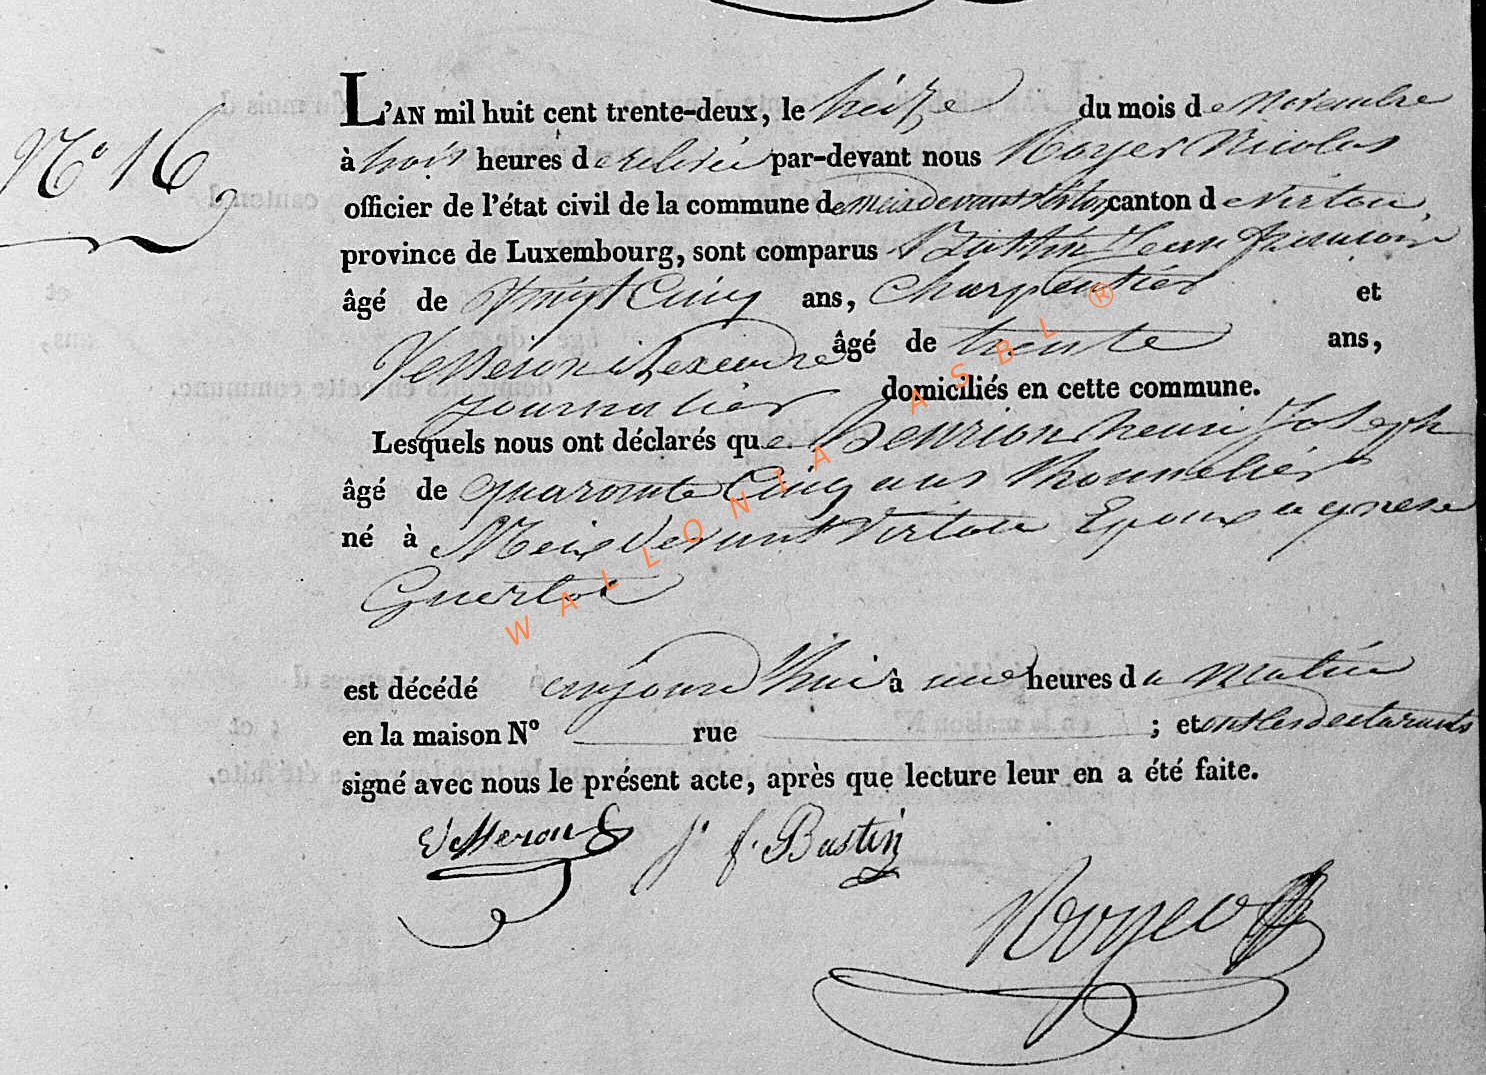 L'AN mil huit cent trente-deux, le treize du mois de Novembre
N° 16
à trois heures de relevée par-devant nous Royer Nicolas
officier de l'état civil de la commune de meix devant Virton canton de Virton,
province de Luxembourg, sont comparus Bustin Jean françois
âgé de Vingt Cinq ans, Charpentier et
âgé de trente ans,
journalier domiciliés en cette commune.
Lesquels nous ont déclarés que henrion henri Joseph
âgé de quarante Cinq ans
né à Meix devant Virton Epoux agnese
est décédé aujourd'hui à une heures du matin
en la maison N° rue ; et ont les declarants
signé avec nous le présent acte, après que lecture leur en a été faite.
j. f. Bustin
Royer
WALLONIA ASBL ®